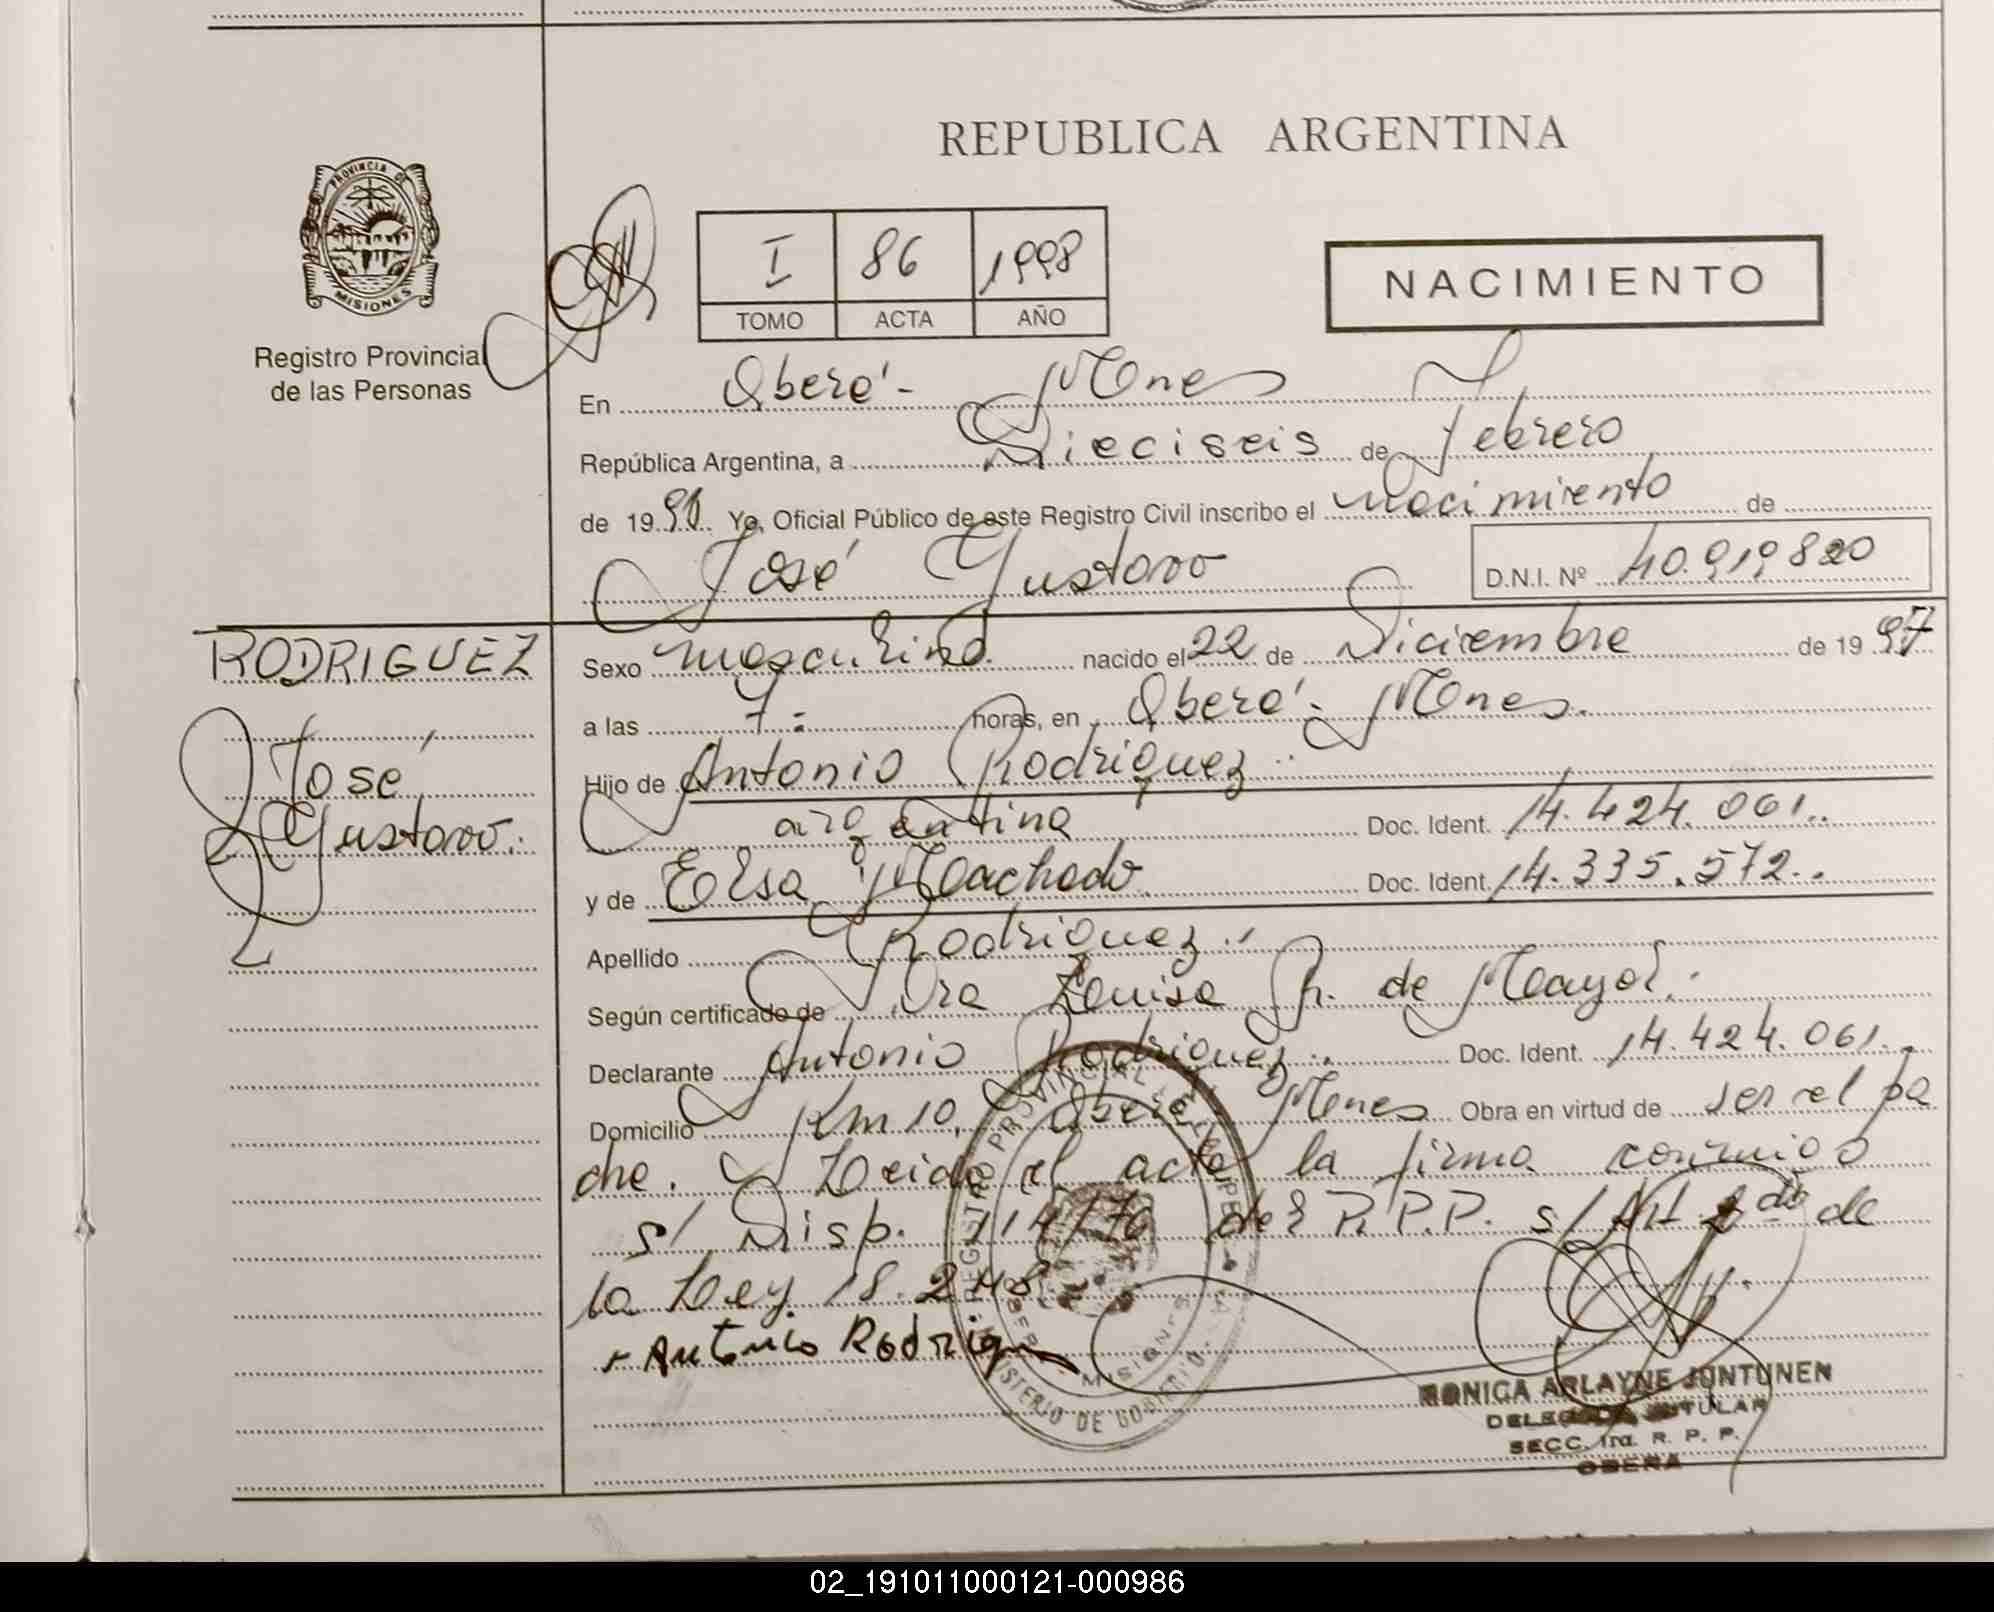 REPUBLICA ARGENTINA
PROVINCIA DE
MISIONES
Registro Provincial
de las Personas
I 86 1998
TOMO ACTA AÑO
NACIMIENTO
En Oberá - Mnes
República Argentina, a Dieciseis de Febrero
de 1998 Yo, Oficial Público de este Registro Civil inscribo el nacimiento de
José Gustavo
D.N.I. Nº 40.919.820
RODRIGUEZ
José
Gustavo.
Sexo masculino nacido el 22 de Diciembre de 1997
a las 7: horas, en Oberá - Mnes.
Hijo de Antonio Rodriguez
argentina Doc. Ident. 14.424.061..
y de Elsa Machado Doc. Ident. 14.335.572..
Apellido Rodriguez
Según certificado de Dra Louisa R. de Mayol.
Declarante Antonio Rodriguez Doc. Ident. 14.424.061.
Domicilio Km 10, Oberá Mnes Obra en virtud de ser el pa
dre. Leida el acta la firma conmigo
s/ Disp. 114/70 del R.P.P. s/ Art 2do de
la Ley 18.248
Antonio Rodrig
REGISTRO PROVINCIAL DE LAS PERSONAS
MINISTERIO DE GOBIERNO
MISIONES
MONICA ARLAYNE JONTUNEN
DELEGADA TITULAR
SECC. 1ra. R. P. P.
OBERA
02_191011000121-000986